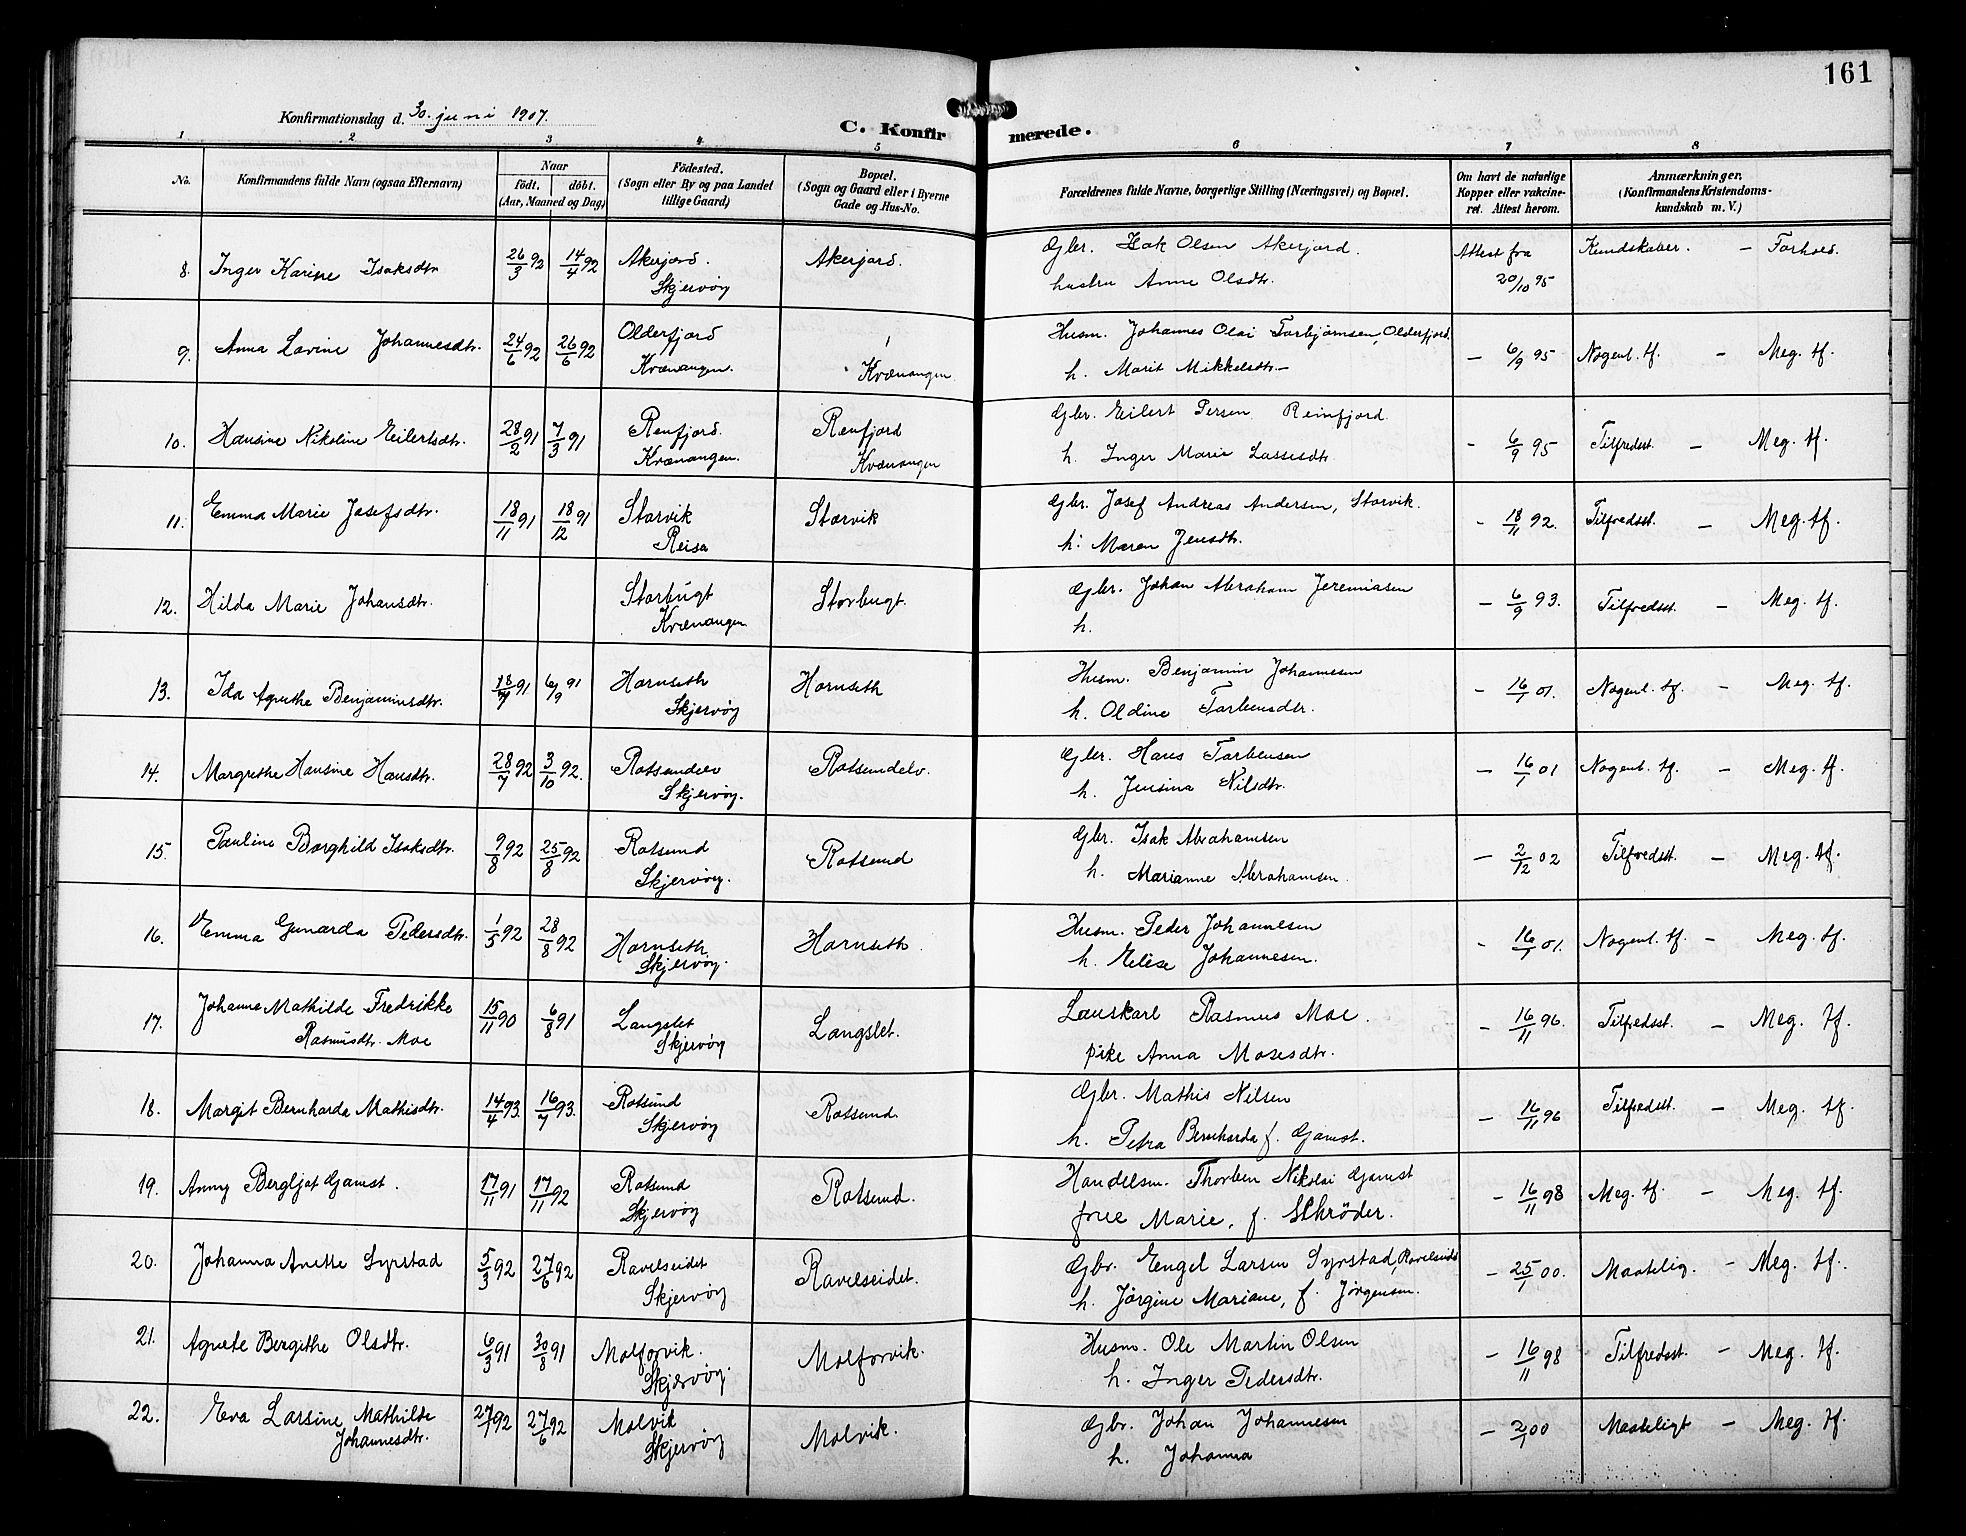 161
Konfirmationsdag d. 30. juni 1907.
C. Konfirmerede.
1 2 3 4 5 6 7 8
No. Konfirmandens fulde Navn (ogsaa Efternavn) Naar født. døbt. (Aar, Maaned og Dag) Fødested. (Sogn eller By og paa Landet tillige Gaard) Bopæl. (Sogn og Gaard eller i Byerne Gade og Hus-No. Forældrenes fulde Navne, borgerlige Stilling (Næringsvei) og Bopæl. Om havt de naturlige Kopper eller vakcineret. Attest herom. Anmærkninger. (Konfirmandens Kristendomskundskab m. V.)
8. Inger Karine Isaksdtr 26/3 92 14/4 92 Akerjord. Akerjord. Gbr. Isak Olsen Akerjord. Attest fra Kundskaber. - Forhold.
Skjervøy hustru Anne Olsdtr. 20/10 95
9. Anna Lavine Johannesdtr. 24/6 92 26/6 92 Olderfjord Husm. Johannes Olai Torbjørnsen, Olderfjord. - 6/9 95 Nogenl. tf. - Meg. tf.
Kvænangen. Kvænangen h. Marit Mikkelsdtr.
10. Hansine Nikoline Eilertsdtr. 28/2 91 7/3 91 Renfjord. Renfjord Gbr. Eilert Persen Reinfjord. - 6/9 95 Tilfredsst. - Meg. tf.
Kvænangen. Kvænangen h. Inger Marie Lassesdtr
11. Emma Marie Josefsdtr. 18/11 91 18/12 91 Storvik Storvik Gbr. Josef Andreas Andersen, Storvik. - 18/11 92. Tilfredsst. - Meg. tf.
Reisa h. Maren Jensdtr.
12. Hilda Marie Johansdtr. Storbugt Storbugt. Gbr. Johan Abraham Jeremiasen - 6/9 93. Tilfredsst. - Meg. tf.
Kvænangen h.
13. Ida Agnethe Benjaminsdtr. 18/7 91 6/9 91 Hamseth Hamseth Husm. Benjamin Johannesen - 16/1 01. Nogenl. tf. - Meg. tf.
Skjervøy h. Oldine Torbensdtr.
14. Margrethe Hansine Hansdtr. 28/7 92 3/10 92. Rotsundelv Rotsundelv. Gbr. Hans Torbensen - 16/1 01 Nogenl. tf. - Meg. tf.
Skjervøy. h. Jensina Nilsdtr.
15. Pauline Borghild Isaksdtr. 9/8 92 25/8 92 Rotsund Rotsund Gbr. Isak Abrahamsen - 2/12 02 Tilfredsst. - Meg. tf.
Skjervøy. h. Marianne Abrahamsen.
16. Emma Gunarda Pedersdtr. 1/5 92 28/8 92 Hamseth Hamseth. Husm. Peder Johannesen - 16/1 01. Nogenl. tf. - Meg. tf.
Skjervøy. h. Elise Johannesen.
17. Johanne Mathilde Fredrikke 15/11 90 6/8 91 Langslet Langslet. Lauskarl Rasmus Moe. - 16/11 96. Tilfredsst. - Meg. tf.
Rasmusdtr. Moe Skjervøy pike Anna Mosesdtr.
18. Margit Bernharda Mathisdtr. 14/4 93 16/7 93. Rotsund Rotsund Gbr. Mathis Nilsen - 16/11 96 Tilfredsst. - Meg. tf.
Skjervøy h. Petra Bernharda f. Gamst.
19. Anny Bergljot Gamst. 17/11 91 17/11 92 Rotsund Rotsund. Handelsm. Thorben Nikolai Gamst - 16/11 98 Meg. tf. - Meg. tf.
Skjervøy frue Marie, f. Schrøder.
20. Johanna Anette Syrstad 5/3 92 27/6 92 Ravelseidet Ravelseidet. Gbr. Engel Larsen Syrstad, Ravelseidet - 25/1 00. Maatelig. - Meg. tf.
Skjervøy h. Jørgine Mariane, f. Jørgensen.
21. Agnete Bergithe Olsdtr. 6/3 91 30/8 91 Molforvik. Molforvik. Husm. Ole Martin Olsen - 16/11 98 Tilfredsst. - Meg. tf.
Skjervøy. h. Inger Pedersdtr.
22. Eva Larsine Mathilde 27/ 92 27/6 92 Molvik Molvik. Gbr. Johan Johannesen - 2/1 00 Maateligt - Meg. tf.
Johannesdtr. Skjervøy h. Johanna